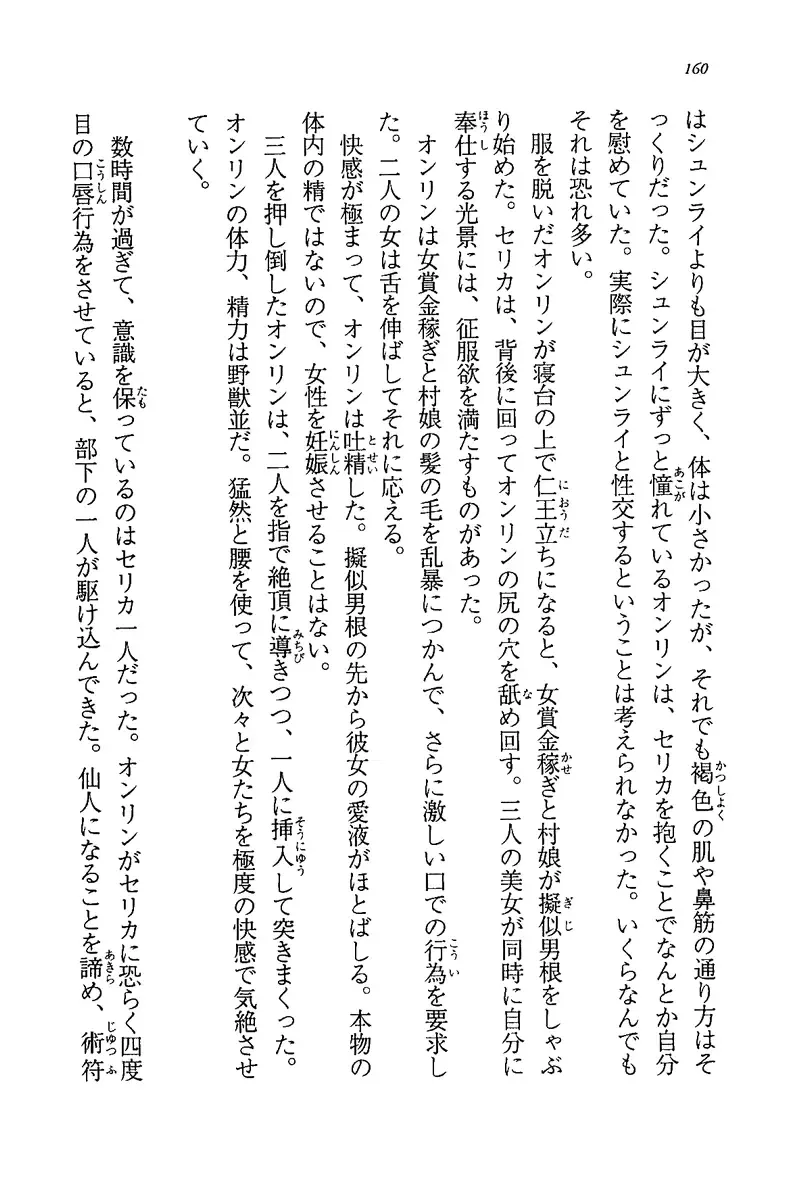 160
はシュンライよりも目が大きく、体は小さかったが、それでも褐色の肌や鼻筋の通り方はそ
っくりだった。シュンライにずっと憧れているオンリンは、セリカを抱くことでなんとか自分
を慰めていた。実際にシュンライと性交するということは考えられなかった。いくらなんでも
それは恐れ多い。
服を脱いだオンリンが寝台の上で仁王立ちになると、女賞金稼ぎと村娘が擬似男根をしゃぶ
り始めた。セリカは、背後に回ってオンリンの尻の穴を舐め回す。三人の美女が同時に自分に
奉仕する光景には、征服欲を満たすものがあった。
オンリンは女賞金稼ぎと村娘の髪の毛を乱暴につかんで、さらに激しい口での行為を要求し
た。二人の女は舌を伸ばしてそれに応える。
快感が極まって、オンリンは吐精した。擬似男根の先から彼女の愛液がほとばしる。本物の
体内の精ではないので、女性を妊娠させることはない。
三人を押し倒したオンリンは、二人を指で絶頂に導きつつ、一人に挿入して突きまくった。
オンリンの体力、精力は野獣並だ。猛然と腰を使って、次々と女たちを極度の快感で気絶させ
ていく。
数時間が過ぎて、意識を保っているのはセリカ一人だった。オンリンがセリカに恐らく四度
目の口唇行為をさせていると、部下の一人が駆け込んできた。仙人になることを諦め、術符